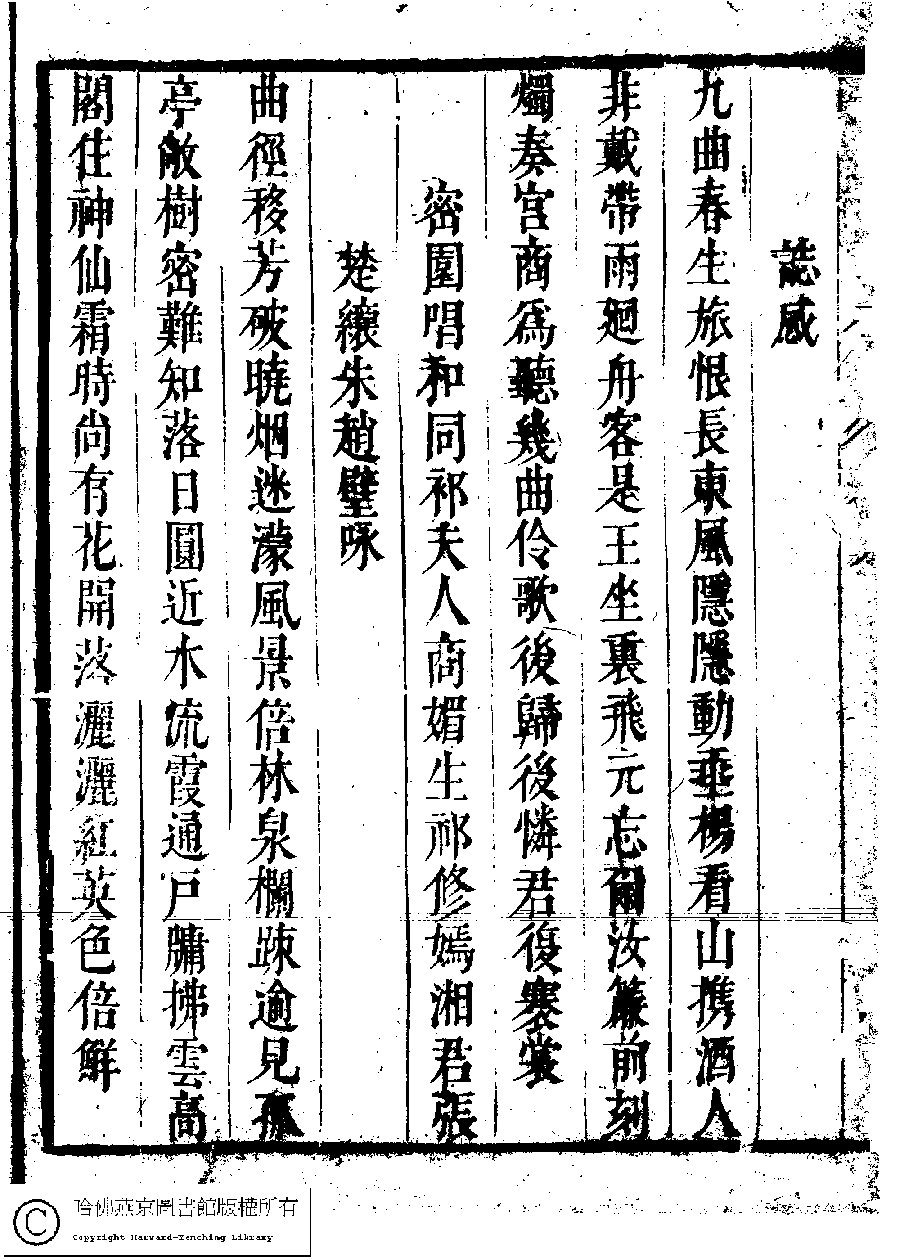 誌感
九曲春生旅恨長東風隱隱動垂楊看山携酒人
非戴帶雨廻舟客是王坐裏飛元忘爾汝簾前刻
燭奏宮商爲聽幾曲伶歌後歸後憐君復褰裳
密園唱和同祁夫人商媚生祁修嫣湘君張
楚纕朱趙璧咏
曲徑移芳破曉烟迷濛風景倍林泉欄踈逾見孤
亭敞樹密難知落日圓近水流霞通戸牖拂雲高
閣住神仙霜時尚有花開落灑灑紅英色倍鮮
哈佛燕京圖書館版權所有
Copyright Harvard-Yenching Library